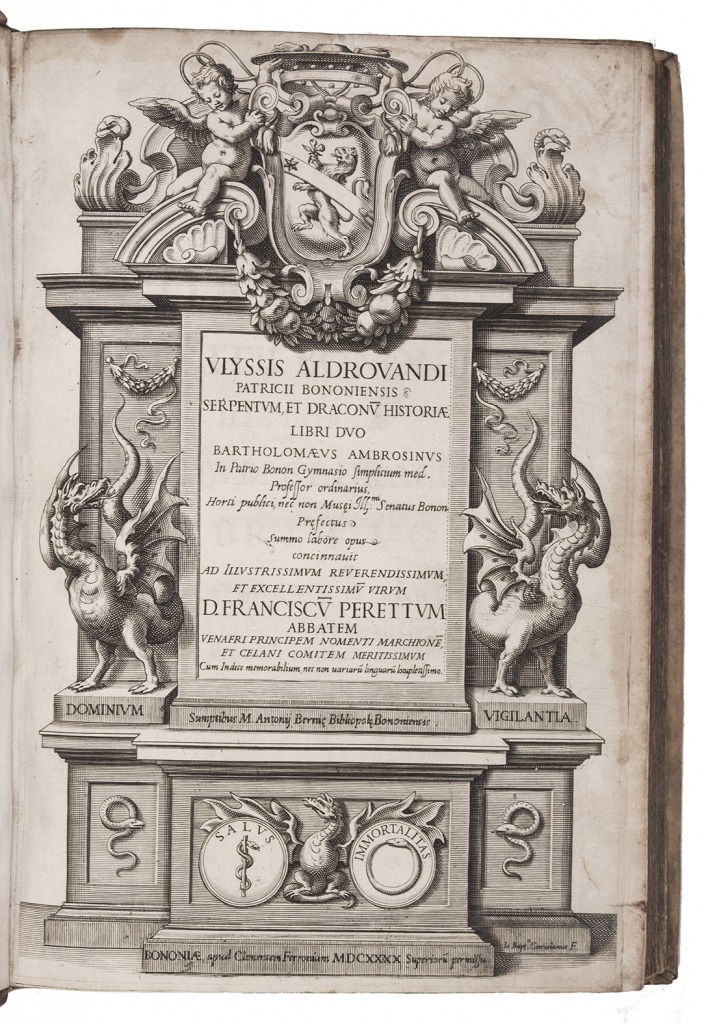 VLYSSIS ALDROVANDI
PATRICII BONONIENSIS
SERPENTVM, ET DRACONV̄ HISTORIÆ
LIBRI DVO
BARTHOLOMÆVS AMBROSINVS
In Patrio Bonon Gymnasio simplicium med.
Professor ordinarius,
Horti publici, nec non Musęi Ill.mi Senatus Bonon
Pręfectus
summo labore opus
concinnauit
AD ILLVSTRISSIMVM REVERENDISSIMVM,
ET EXCELLENTISSIMV̄ VIRVM
D. FRANCISCV̄ PERETTVM
ABBATEM
VENAFRI PRINCIPEM NOMENTI MARCHIONĒ,
ET CELANI COMITEM MERITISSIMVM
Cum Indice memorabilium, nec non uariarū linguarū locupletissimo.
DOMINIVM
Sumptibus M. Antonij Bernię Bibliopolę Bononiensis.
VIGILANTIA
SALVS
IMMORTALITAS
BONONIÆ, apud Clementem Ferronium MDCXXXX Superiorū permissu
Io. Bapt. Coriolanus F.